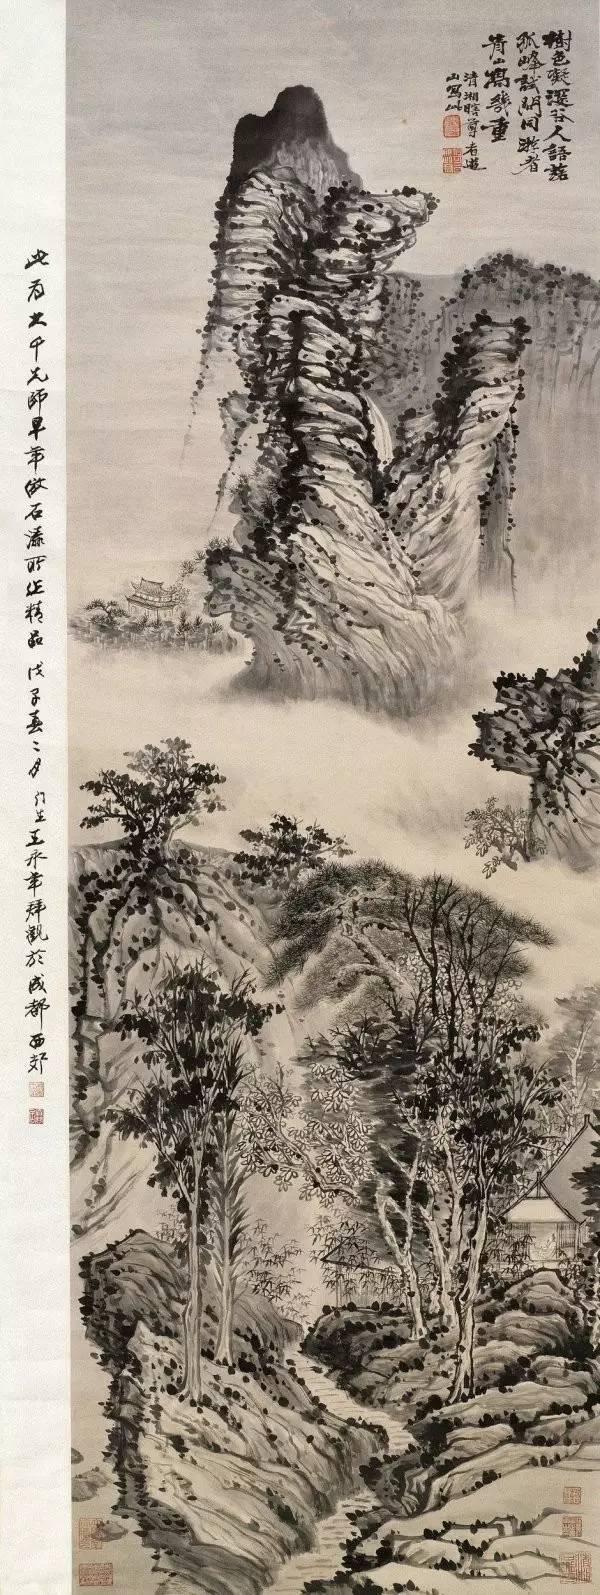 樹色凝谷人語
孤峰試問同遊者
青山寫幾重
清湘瞎尊者遊
山寫此
此為大千先師早年倣石濤所作精品 戊子春二月 門生王永年拜觀於成都西郊